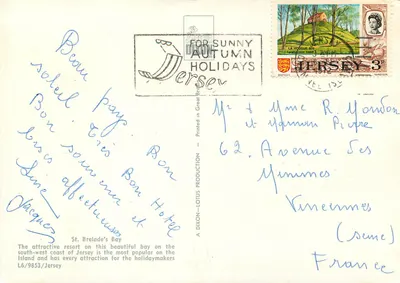 FOR SUNNY
AUTUMN
HOLIDAYS
Jersey
LA HOUGUE BIE
JERSEY 3
Beau pays
soleil. Très Bon
Bon Hotel
Bon souvenir et
bises affectueuses
Jacques
Mr & Mme R. Mondon
et Maman
62, Avenue des
Minimes
Vincennes
(seine)
France
A DIXON-LOTUS PRODUCTION
Printed in Great
St. Brelade's Bay
The attractive resort on this beautiful bay on the
south-west coast of Jersey is the most popular on the
Island and has every attraction for the holidaymakers
L6/9653/Jersey